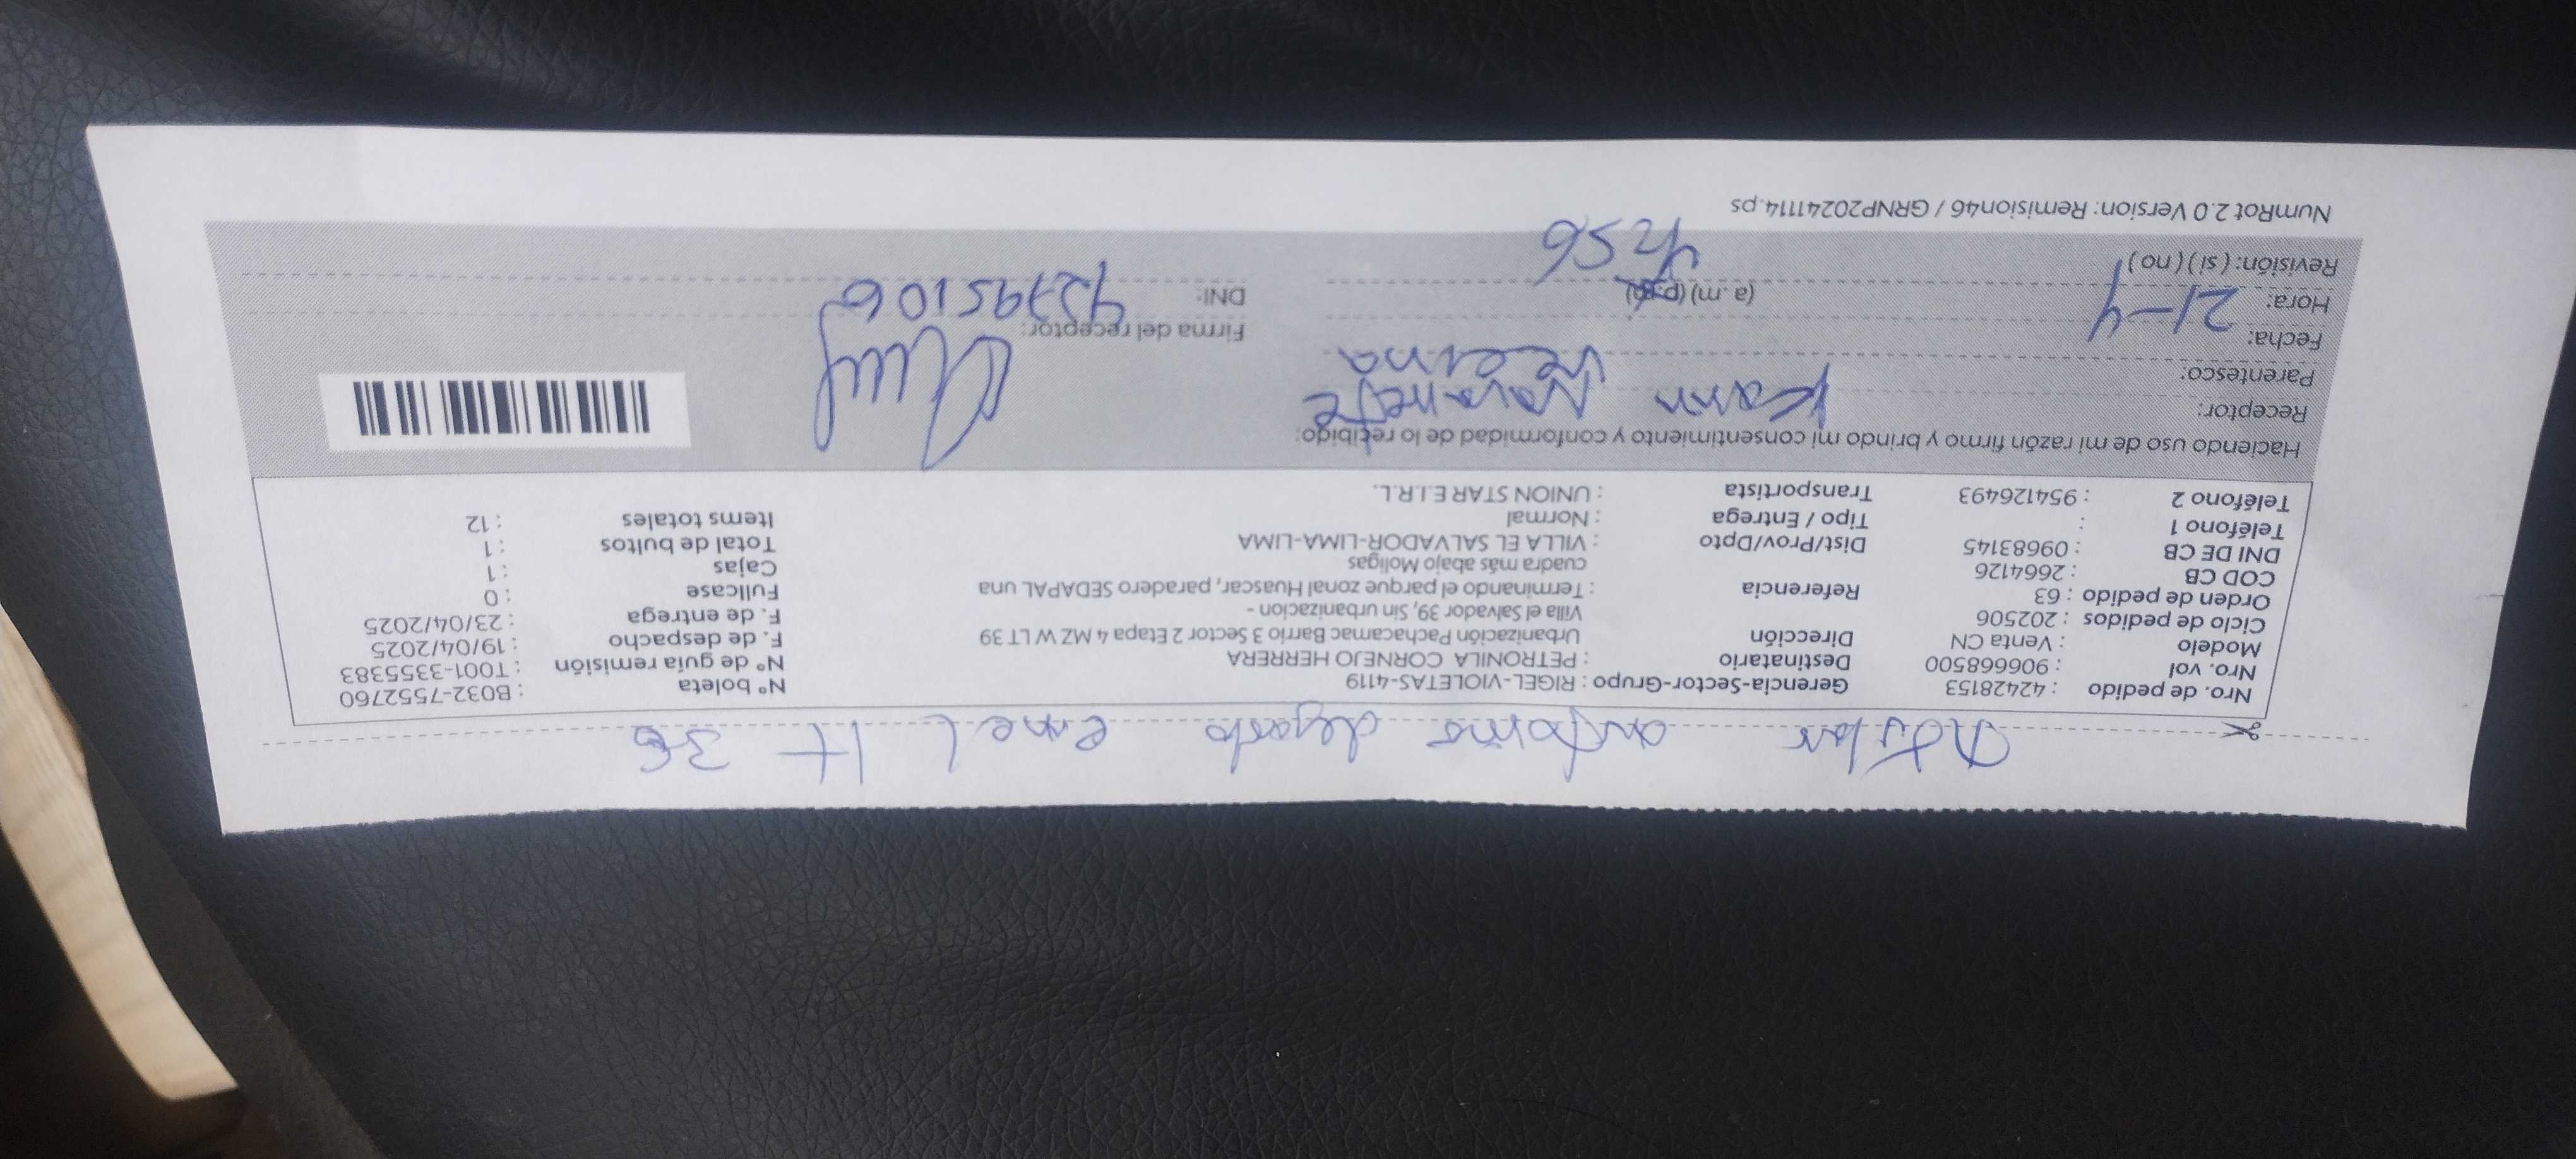 autoriso dejarlo en el lt 36
Nro. de pedido : 42428153 Gerencia-Sector-Grupo : RIGEL-VIOLETAS-4119 N° boleta : B032-7552760
Nro. vol : 906668500 Destinatario : PETRONILA CORNEJO HERRERA N° de guía remisión : T001-3355383
Modelo : Venta CN Dirección Urbanización Pachacamac Barrio 3 Sector 2 Etapa 4 MZ W LT 39 F. de despacho : 19/04/2025
Ciclo de pedidos : 202506 Villa el Salvador 39, Sin urbanizacion - F. de entrega : 23/04/2025
Orden de pedido : 63 Referencia : Terminando el parque zonal Huascar, paradero SEDAPAL una Fullcase : 0
COD CB : 2664126 cuadra más abajo Moligas Cajas : 1
DNI DE CB : 09683145 Dist/Prov/Dpto : VILLA EL SALVADOR-LIMA-LIMA Total de bultos : 1
Teléfono 1 : Tipo / Entrega : Normal Items totales : 12
Teléfono 2 : 954126493 Transportista : UNION STAR E.I.R.L.
Haciendo uso de mi razón firmo y brindo mi consentimiento y conformidad de lo recibido:
Receptor: Karin Navarrete
Parentesco: vecina
Fecha: 21-4 Firma del receptor:
Hora: (a.m) (p.m) DNI: 42795106
Revisión: (si) (no) 4:56
NumRot 2.0 Version: Remision46 / GRNP20241114.ps